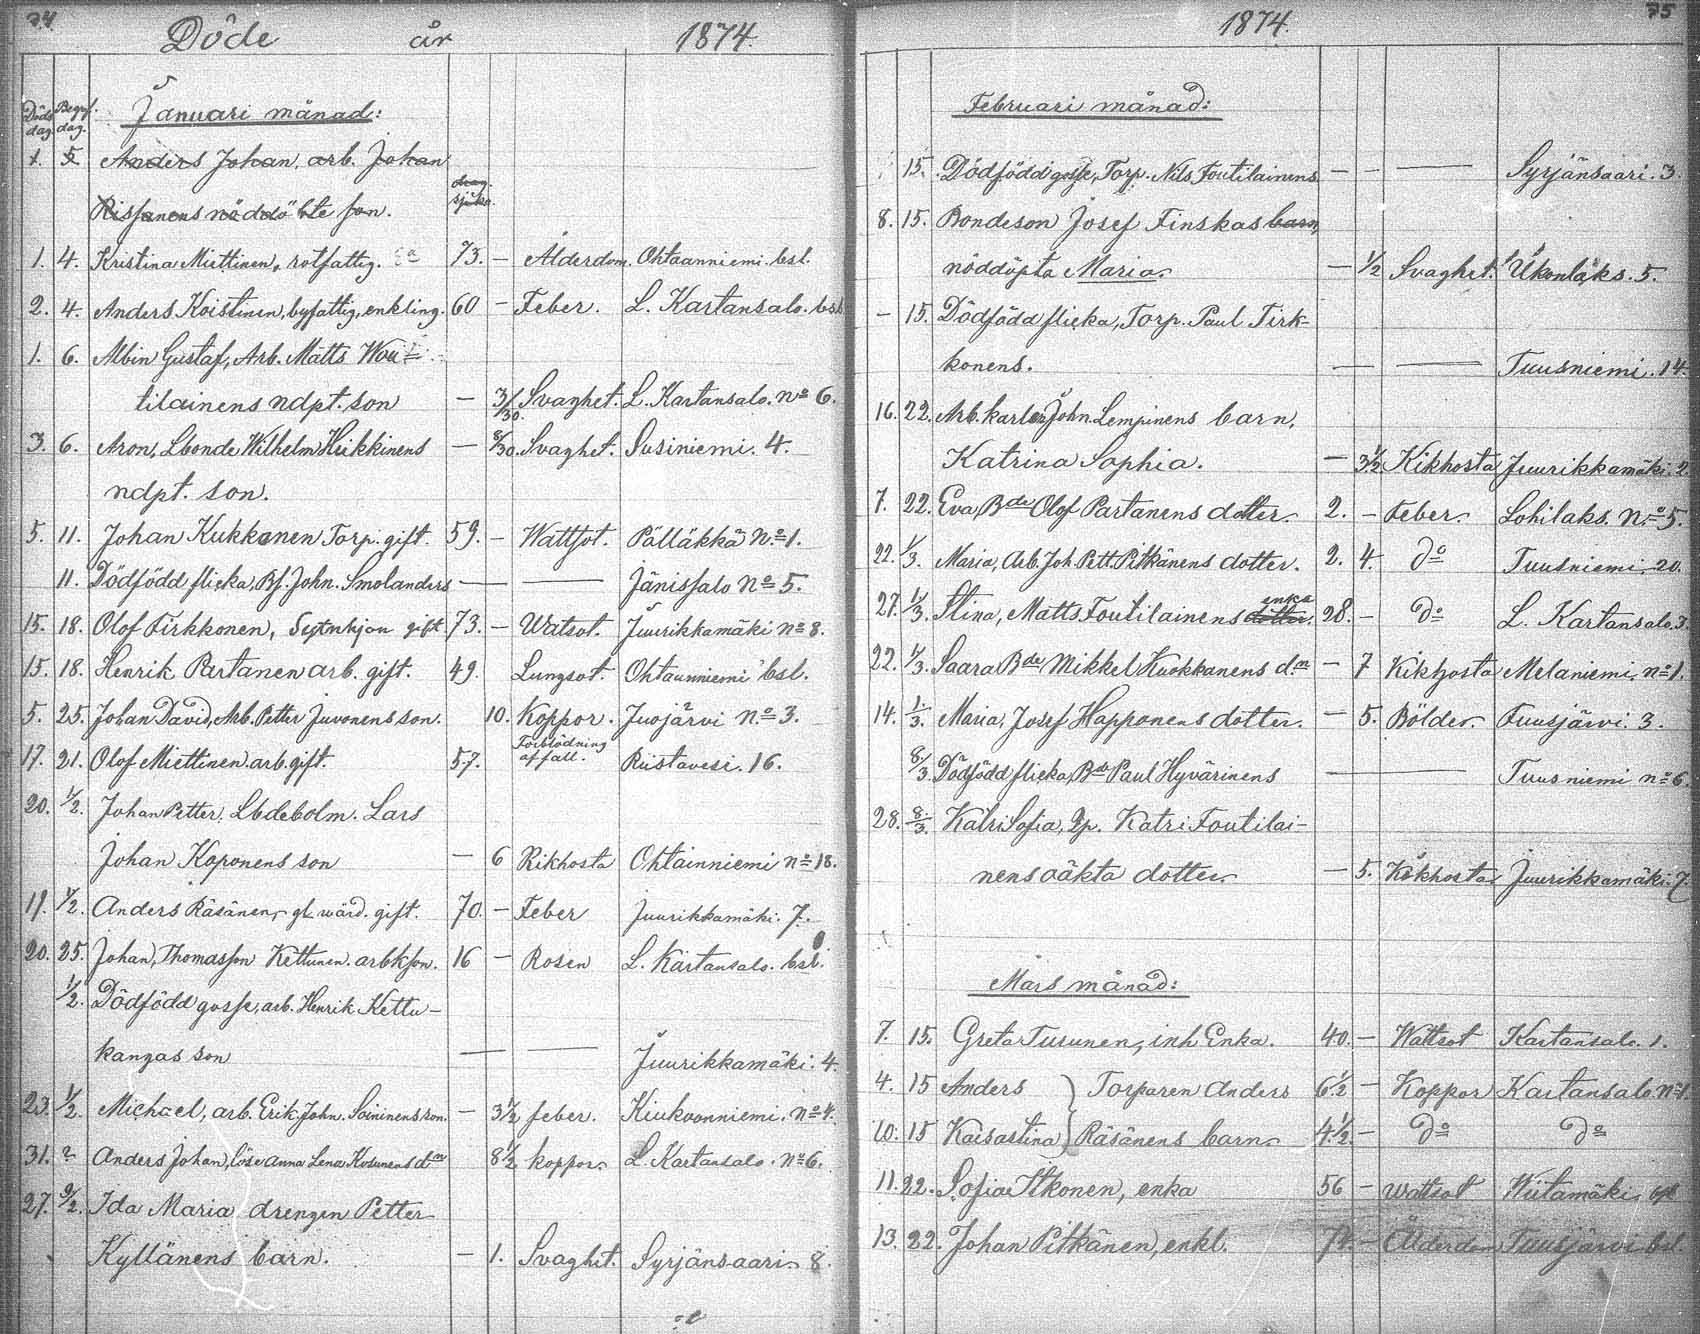 74
Döde år 1874.
Döds dag. Begrf. dag. Januari månad:
1. 5 Anders Johan, arb. Johan
Rissanens nöddöbte son.
1. 4. Kristina Miettinen, rotfattig. 73. — Ålderdom. Ohtaanniemi. bsl.
2. 4. Anders Koistinen, byfattig, enkling. 60 — Feber. L. Kartansalo. bsl
1. 6. Albin Gustaf, Arb. Matts Wou-
tilainens ndpt. son — 3/30. Svaghet. L. Kartansalo. No 6.
3. 6. Aron, Lbonde Wilhelm Hikkinens — 8/30. Svaghet. Susiniemi. 4.
ndpt. son.
5. 11. Johan Kukkonen Torp. gift. 59. — Wattsot. Pälläkkä No 1.
11. Dödfödd flicka, Bf. John. Smolanders — — Jänissalo No 5.
15. 18. Olof Tirkkonen, gift 73. — Watsot. Juurikkamäki No 8.
15. 18. Henrik Partanen arb. gift. 49. Lungsot. Ohtaanniemi bsl.
5. 25. Johan David, Arb. Petter Juvonens son. 10. Koppor. Juojärvi No 3.
17. 21. Olof Miettinen. arb. gift. 57. Förblödning af fall. Riistavesi. 16.
20. 1/2. Johan Petter, Lars
Johan Koponens son — 6 Kikhosta Ohtainniemi No 18.
19. 1/2. Anders Räsänen, gl. wärd. gift. 70. — Feber Juurikkamäki. 7.
20. 25. Johan, Thomasson Kettunen. arbkson. 16 — Rosen L. Kartansalo. bsl.
1/2. Dödfödd gosse, arb. Henrik Kettu-
kangas son — — Juurikkamäki. 4.
23. 1/2. Michael, arb. Erik John. Soininens son. — 3 1/2 feber. Kiukoonniemi. No 4.
31. Anders Johan, lösa Anna Lena Kosunens 8 1/2 koppor. L. Kartansalo. No 6.
27. 9/2. Ida Maria drengen Petter
Kyllänens barn. — 1. Svaghet. Syrjänsaari 8.
75
1874.
Februari månad:
15. Dödfödd gosse, Torp. Nils Foutilainens — — — Syrjänsaari. 3.
8. 15. Bondeson Josef Finskas barn,
nöddöpta Maria. — 1/2 Svaghet. Ukonlaks. 5.
— 15. Dödfödd flicka, Torp. Paul Tirk-
konens. — — — Tuusniemi. 14.
16. 22. Arb. karlen John Lempinens barn,
Katrina Sophia. — 3 1/2 Kikhosta Juurikkamäki. 2.
7. 22. Eva, Bde Olof Partanens dotter. 2. — Feber. Lohilaks. No 5.
22. 1/3. Maria, Arb. Joh. Pett. Pitkänens dotter. 2. 4. do Tuusniemi. 20.
27. 1/3. Stina, Matts Foutilainens dotter. enka 28. — do L. Kartansalo. 3.
22. 1/3. Saara Bde Mikkel Kuokkanens d.m — 7 Kikhosta Melaniemi. No 1.
14. 1/3. Maria, Josef Happonens dotter. — 5. Bölder. Tuusjärvi. 3.
8/3. Dödfödd flicka, Bde Paul Hyvärinens — — Tuusniemi No 6.
28. 8/3. Katri Sofia, Katri Foutilai-
nens oäkta dotter. — 5. Kikhosta. Juurikkamäki. 7.
Mars månad:
7. 15. Greta Turunen, inh Enka. 40. — Wattsot Kartansalo. 1.
4. 15 Anders } Torparen Anders 6 1/2 — Koppor Kartansalo. No 1.
10. 15 Kaisastina } Räsänens barn. 4 1/2 — do do
11. 22. Sofia Itkonen, enka 56 — wattsot Wiitamäki
13. 22. Johan Pitkänen, enkl. — Ålderdom Tuusjärvi bsl.